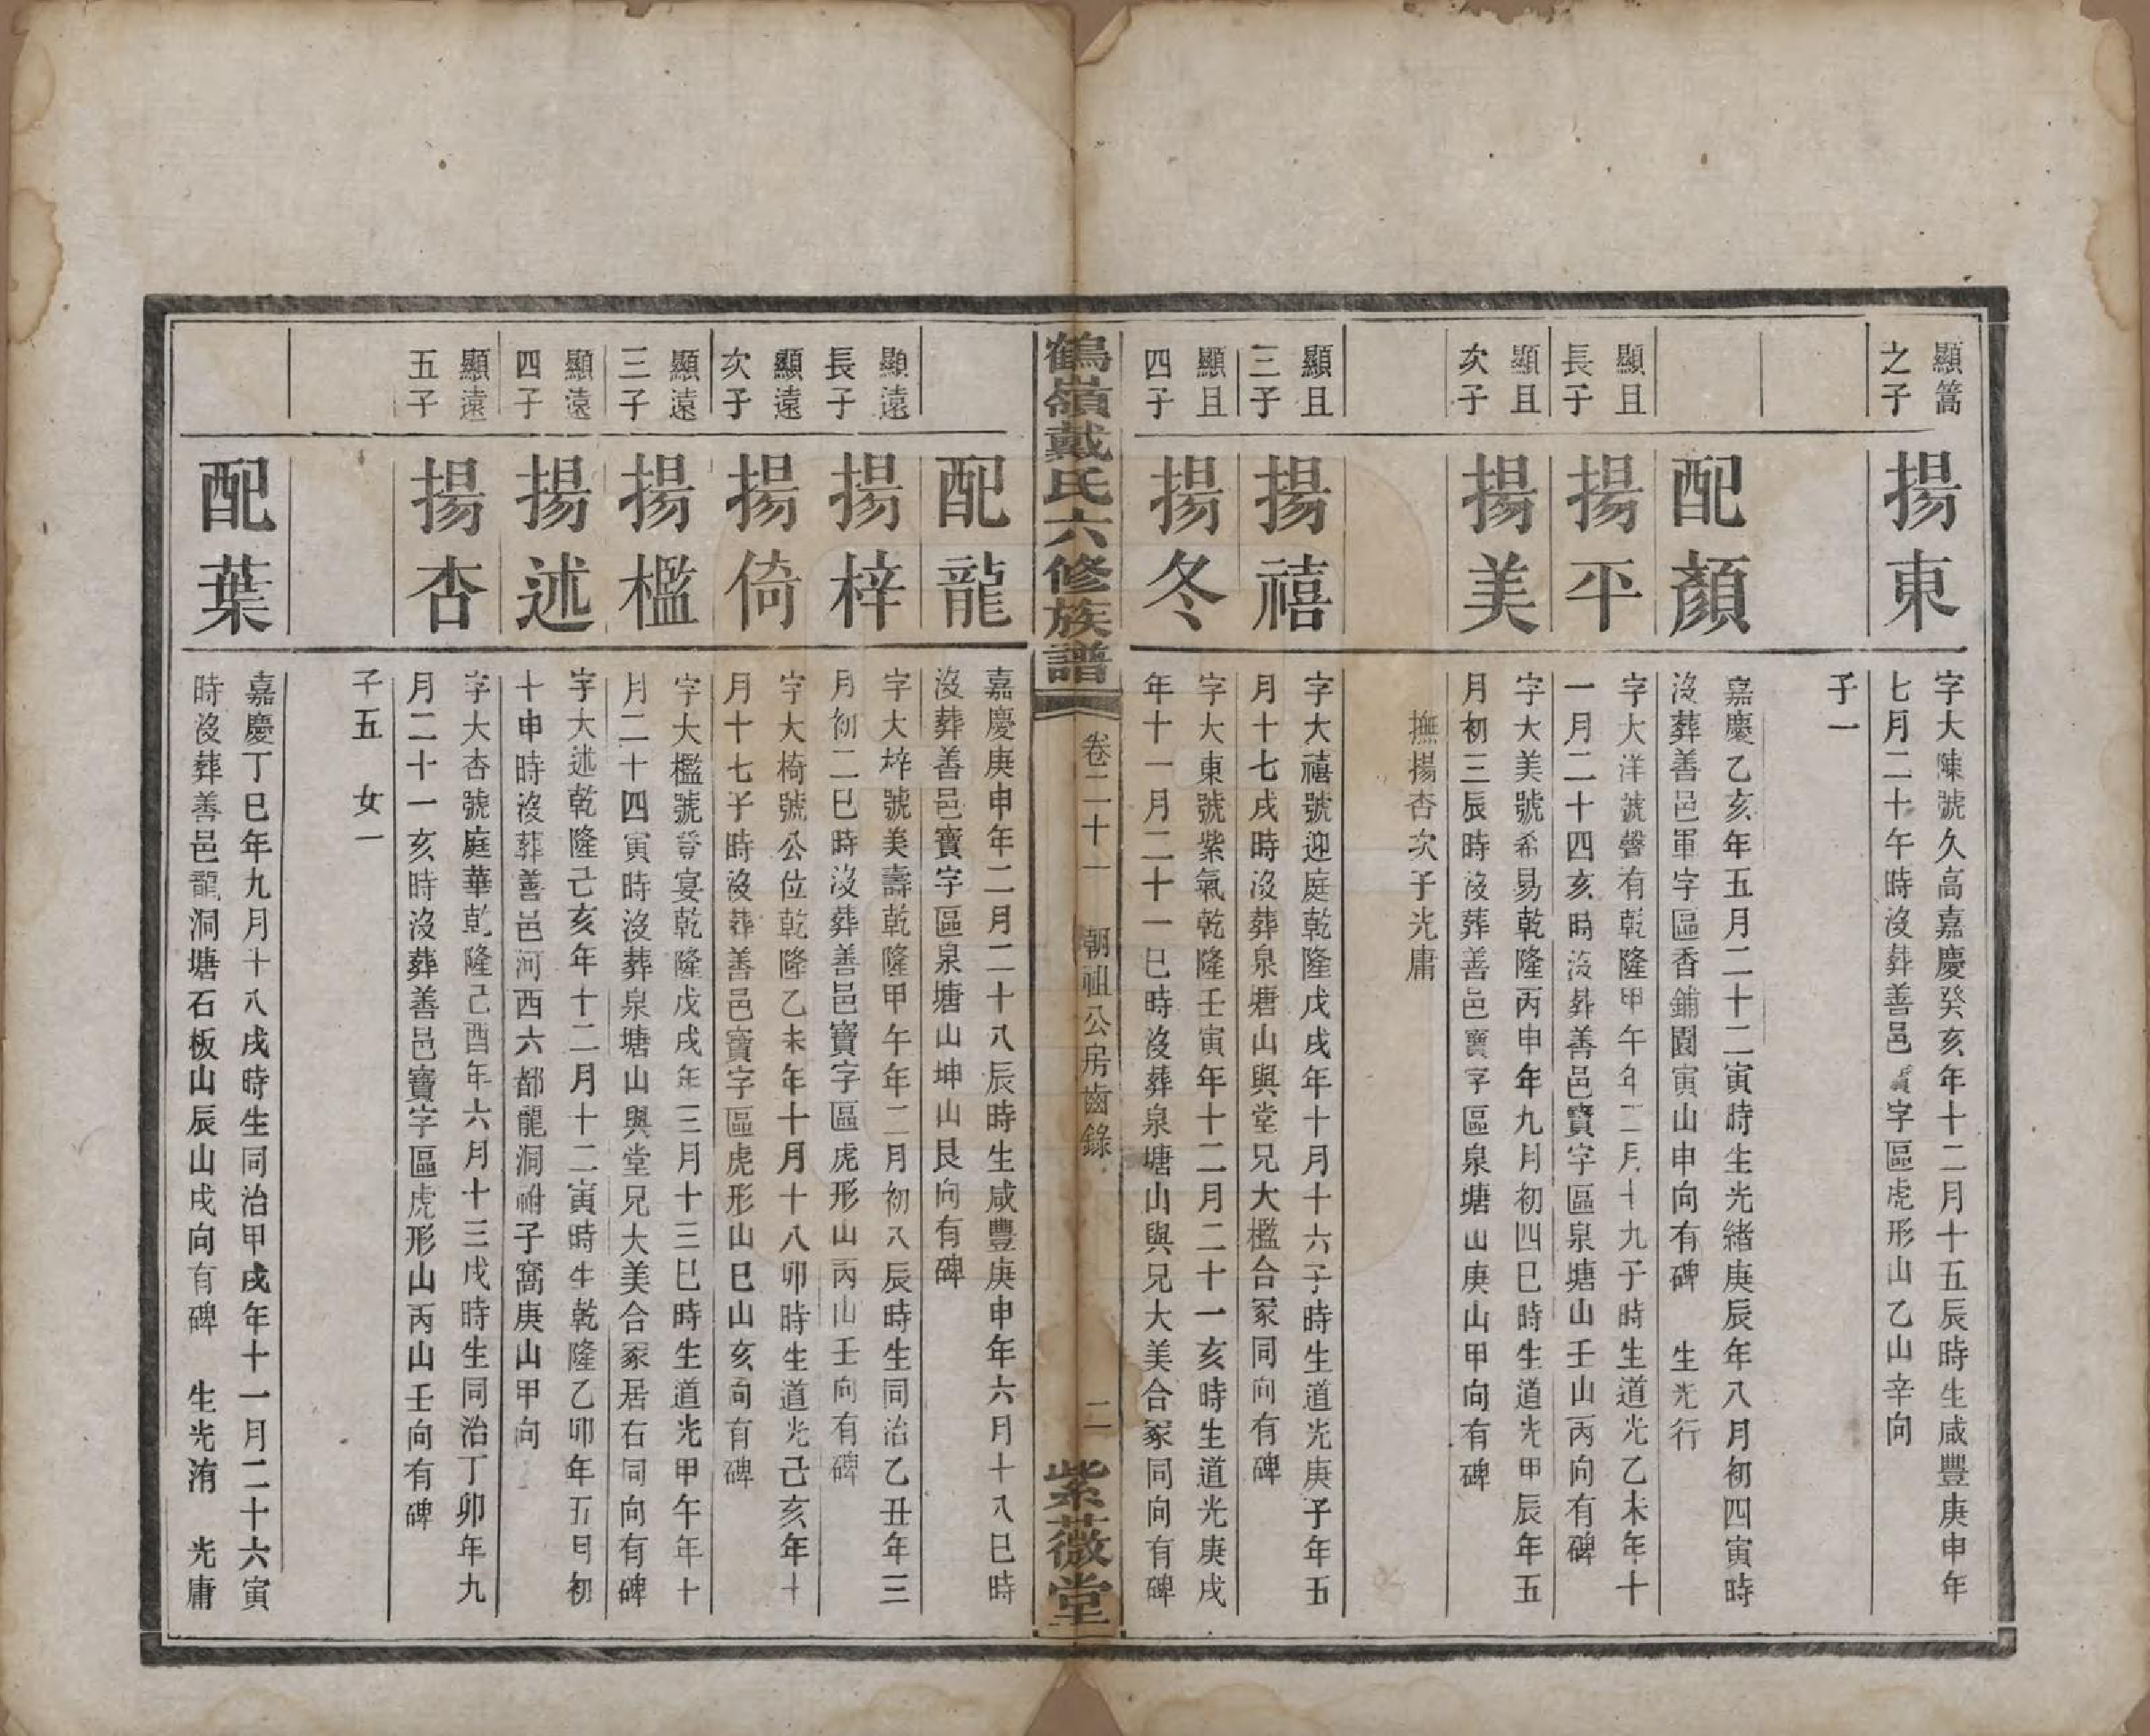 顯篙
之子
揚東
字大陳號久高嘉慶癸亥年十二月十五辰時生咸豐庚申年
七月二十午時沒葬善邑寶字區虎形山乙山辛向
子一
配顏
嘉慶乙亥年五月二十二寅時生光緒庚辰年八月初四寅時
沒葬善邑軍字區香鋪園寅山申向有碑 生光行
顯且
長子
揚平
字大洋號聲有乾隆甲午年二月十九子時生道光乙未年十
一月二十四亥時沒葬善邑寶字區泉塘山壬山丙向有碑
顯且
次子
揚美
字大美號希易乾隆丙申年九月初四巳時生道光甲辰年五
月初三辰時沒葬善邑寶字區泉塘山庚山甲向有碑
撫揚杏次子光庸
顯且
三子
揚禧
字大禧號迎庭乾隆戊戌年十月十六子時生道光庚子年五
月十七戌時沒葬泉塘山與堂兄大檻合冢同向有碑
顯且
四子
揚冬
字大東號紫氣乾隆壬寅年十二月二十一亥時生道光庚戌
年十一月二十一巳時沒葬泉塘山與兄大美合冢同向有碑
鶴嶺戴氏六修族譜
卷二十一 朝祖公房齒錄
二
紫薇堂
配龍
嘉慶庚申年二月二十八辰時生咸豐庚申年六月十八巳時
沒葬善邑寶字區泉塘山坤山艮向有碑
顯遠
長子
揚梓
字大梓號美壽乾隆甲午年二月初八辰時生同治乙丑年三
月初二巳時沒葬善邑寶字區虎形山丙山壬向有碑
顯遠
次子
揚倚
字大椅號公位乾隆乙未年十月十八卯時生道光己亥年十
月十七子時沒葬善邑寶字區虎形山巳山亥向有碑
顯遠
三子
揚檻
字大檻號登宴乾隆戊戌年三月十三巳時生道光甲午年十
月二十四寅時沒葬泉塘山與堂兄大美合冢居右同向有碑
顯遠
四子
揚述
字大述乾隆己亥年十二月十二寅時生乾隆乙卯年五月初
十申時沒葬善邑河西六都龍洞祔子窩庚山甲向
顯遠
五子
揚杏
字大杏號庭華乾隆己酉年六月十三戌時生同治丁卯年九
月二十一亥時沒葬善邑寶字區虎形山丙山壬向有碑
子五 女一
配葉
嘉慶丁巳年九月十八戌時生同治甲戌年十一月二十六寅
時沒葬善邑龍洞塘石板山辰山戌向有碑 生光洧 光庸